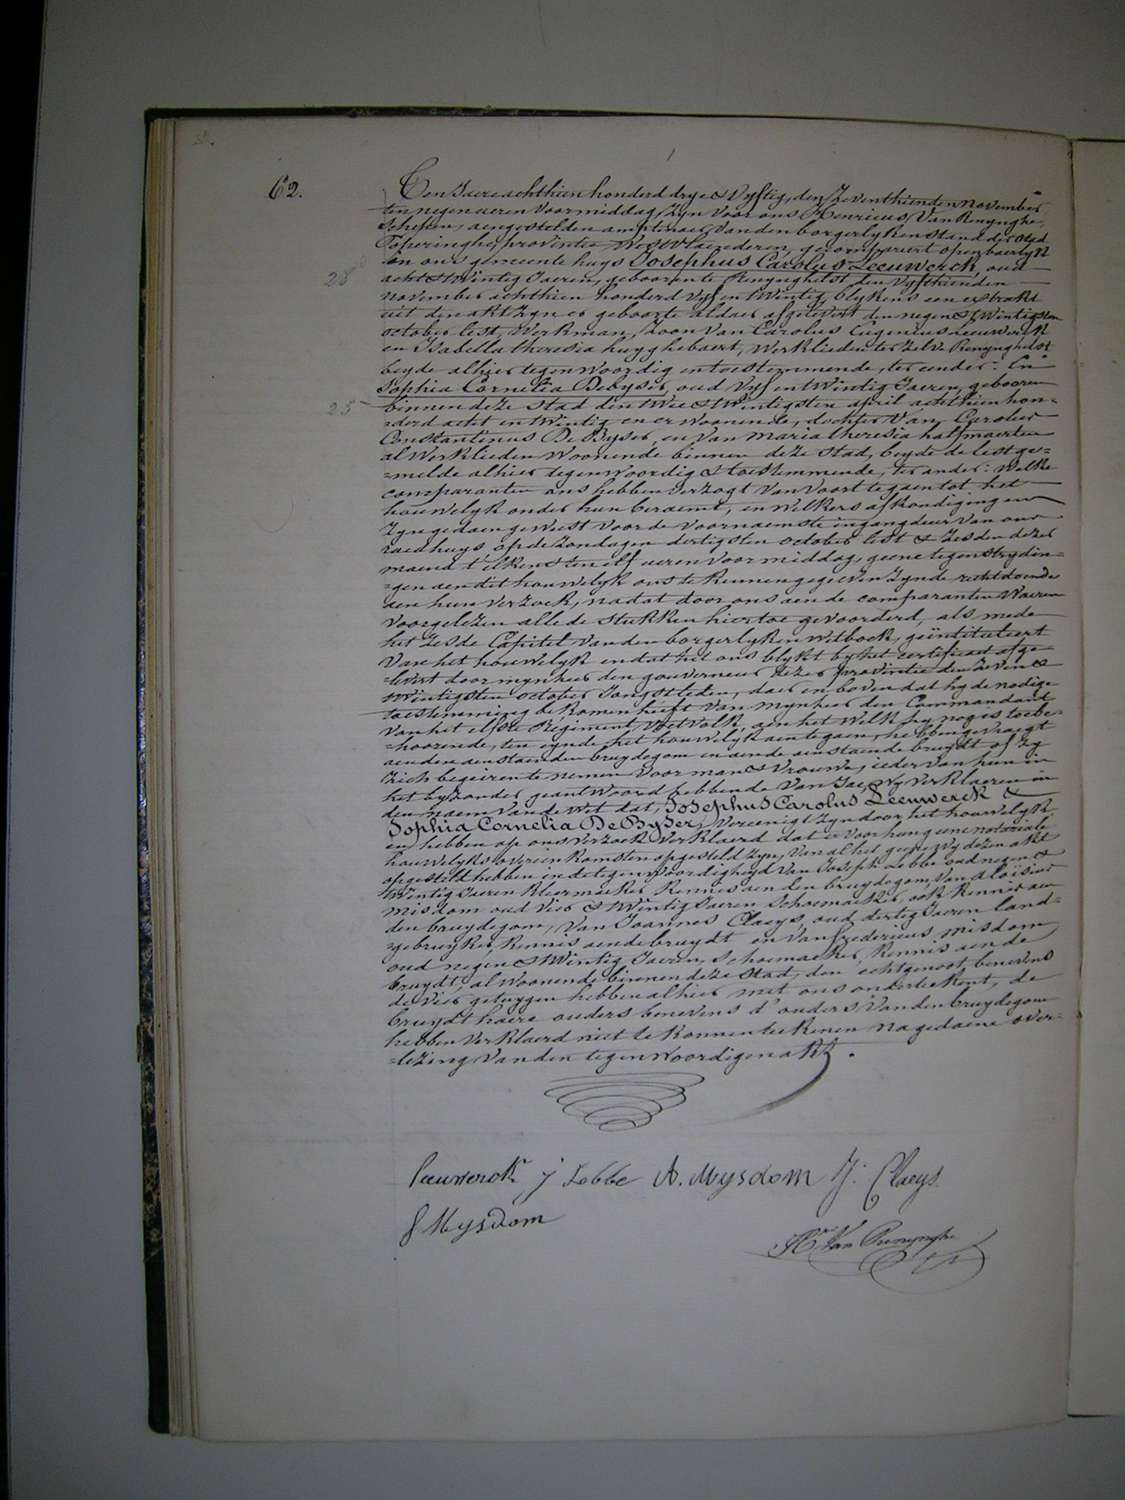 62.
Ten Jaere achthien honderd drye & vyftig, den zeventhienden november
ten negen ueren voormiddag, zyn voor ons Henricus Van Renynghe,
schepen, aengestelden amptenaer van den borgerlyken stand der stad
Poperinghe provintie Westvlaenderen, gecompareert openbaerlyk
in ons gemeente huys Josephus Carolus Leeuwerck, oud
28
acht & twintig Jaeren, geboren te Renynghelst den vyfthienden
november achthien honderd vyf en twintig, blykens een extrakt
uit den akt zyner geboorte aldaer afgelevert den negen & twintigsten
october lest, werkman, zoon van Carolus Eugenius Leeuwerck
en Isabella theresia huyghebaert, werklieden ter zelve Renynghelst
beyde alhier tegenwoordig en toestemmende, ter eender: En
Sophia Cornelia Debyser, oud vyf en twintig Jaeren, geboren
25
binnen deze stad den twee & twintigsten april achthien hon-
=derd acht en twintig en er woonende, dochter van Carolus
Constantinus De Byser, en van maria theresia halfmaerten
al werklieden woonende binnen deze stad, beyde de lest ge=
=melde alhier tegenwoordig & toestemmende, ter ander: Welke
comparanten ons hebben verzogt van voort te gaen tot het
houwelyk onder hun beraemt, en welkers afkondigingen
zyn gedaen geweest voor de voornaemste ingangdeur van ons
raedhuys op de zondagen dertigsten october lest & zesden dezer
maend t' elkens ten elf ueren voormiddag, geene tegenstrydin=
=gen aen dit houwelyk ons te kennen gegeven zynde rechtdoende
aen hun verzoek, nadat door ons aen de comparanten waeren
voorgelezen alle de stukken hiertoe gevoorderd, als mede
het zesde Capitel van den borgerlyken wetboek, geïntituleert
van het houwelyk en dat het ons blykt by het certificaet afge=
=levert door mynheer den gouverneur dezer provintie den zeven &
twintigsten october Jongstleden, daer en boven dat hy de nodige
toestemming bekomen heeft van mynheer den Commandant
van het elfste Regiment voetvolk, aen het welk hy nog is toebe=
=hoorende, ten eynde het houwelyk aen te gaen, hebben gevraegt
aen den aenstaenden bruydegom en aen de aenstaende bruydt of zy
zich begeiren te nemen voor man & vrouwe, ieder van hun in
het byzonder geantwoord hebbende van Jae, wy verklaeren in
den naem van de wet dat, Josephus Carolus Leeuwerck &
Sophia Cornelia De Byser, vereenigt zyn door het houwelyk
en hebben op ons verzoek verklaerd dat er voor hun geene notariale
houwelyks overeenkomsten opgesteld zyn, van al het geene wy dezen akt
opgestelt hebben in de tegenwoordigheyd van Joseph Lebbe oud negen &
twintig Jaeren kleermaeker kennis aen den bruydegom, van Aloïsius
misdom oud vier & twintig Jaeren schoemaeker, ook kennis aen
den bruydegom, van Joannes Claeys, oud dertig Jaeren land=
=gebruyker, kennis aen de bruydt en van fredericus misdom
oud negen & twintig Jaeren, schoemaeker, kennis aen de
bruydt, al woonende binnen deze stad, den echtgenoot, benevens
de vier getuygen hebben alhier met ons onderteekent, de
bruydt haere ouders benevens d' ouders van den bruydegom
hebben verklaerd niet te konnen teekenen na gedaene over=
=lezing van den tegenwoordigen akt.
Leeuwerck j Lebbe A. Mysdom J: Claeys
f Mysdom
Hri Van Renynghe